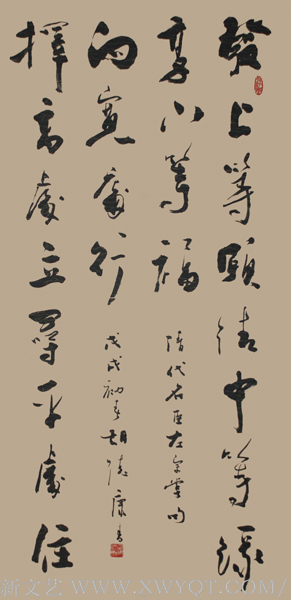 發上等願結中等緣
享下等福
清代名臣左宗棠句
擇高處立尋平處住
向寬處行
戊戌初春胡康書
新文艺 WWW.XWYQT.COM/